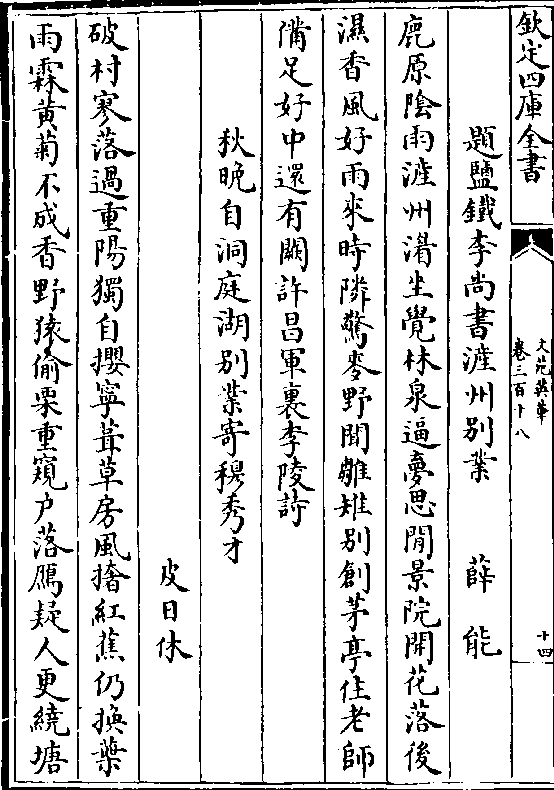 欽定四庫全書
文苑英華
卷三百十八
十四
題鹽鐵李尚書滻州別業
薛能
鹿原陰雨滻州湄坐覺林泉逼夢思閒景院開花落後
濕香風好雨來時隣驚麥野聞雛雉別創茅亭住老師
備足好中還有闕許昌軍裏李陵詩
秋晚自洞庭湖別業寄穆秀才
皮日休
破村寥落過重陽獨自攖寧葺草房風撦紅蕉仍換葉
雨霖黃菊不成香野猿偷栗重窺户落鴈疑人更繞塘